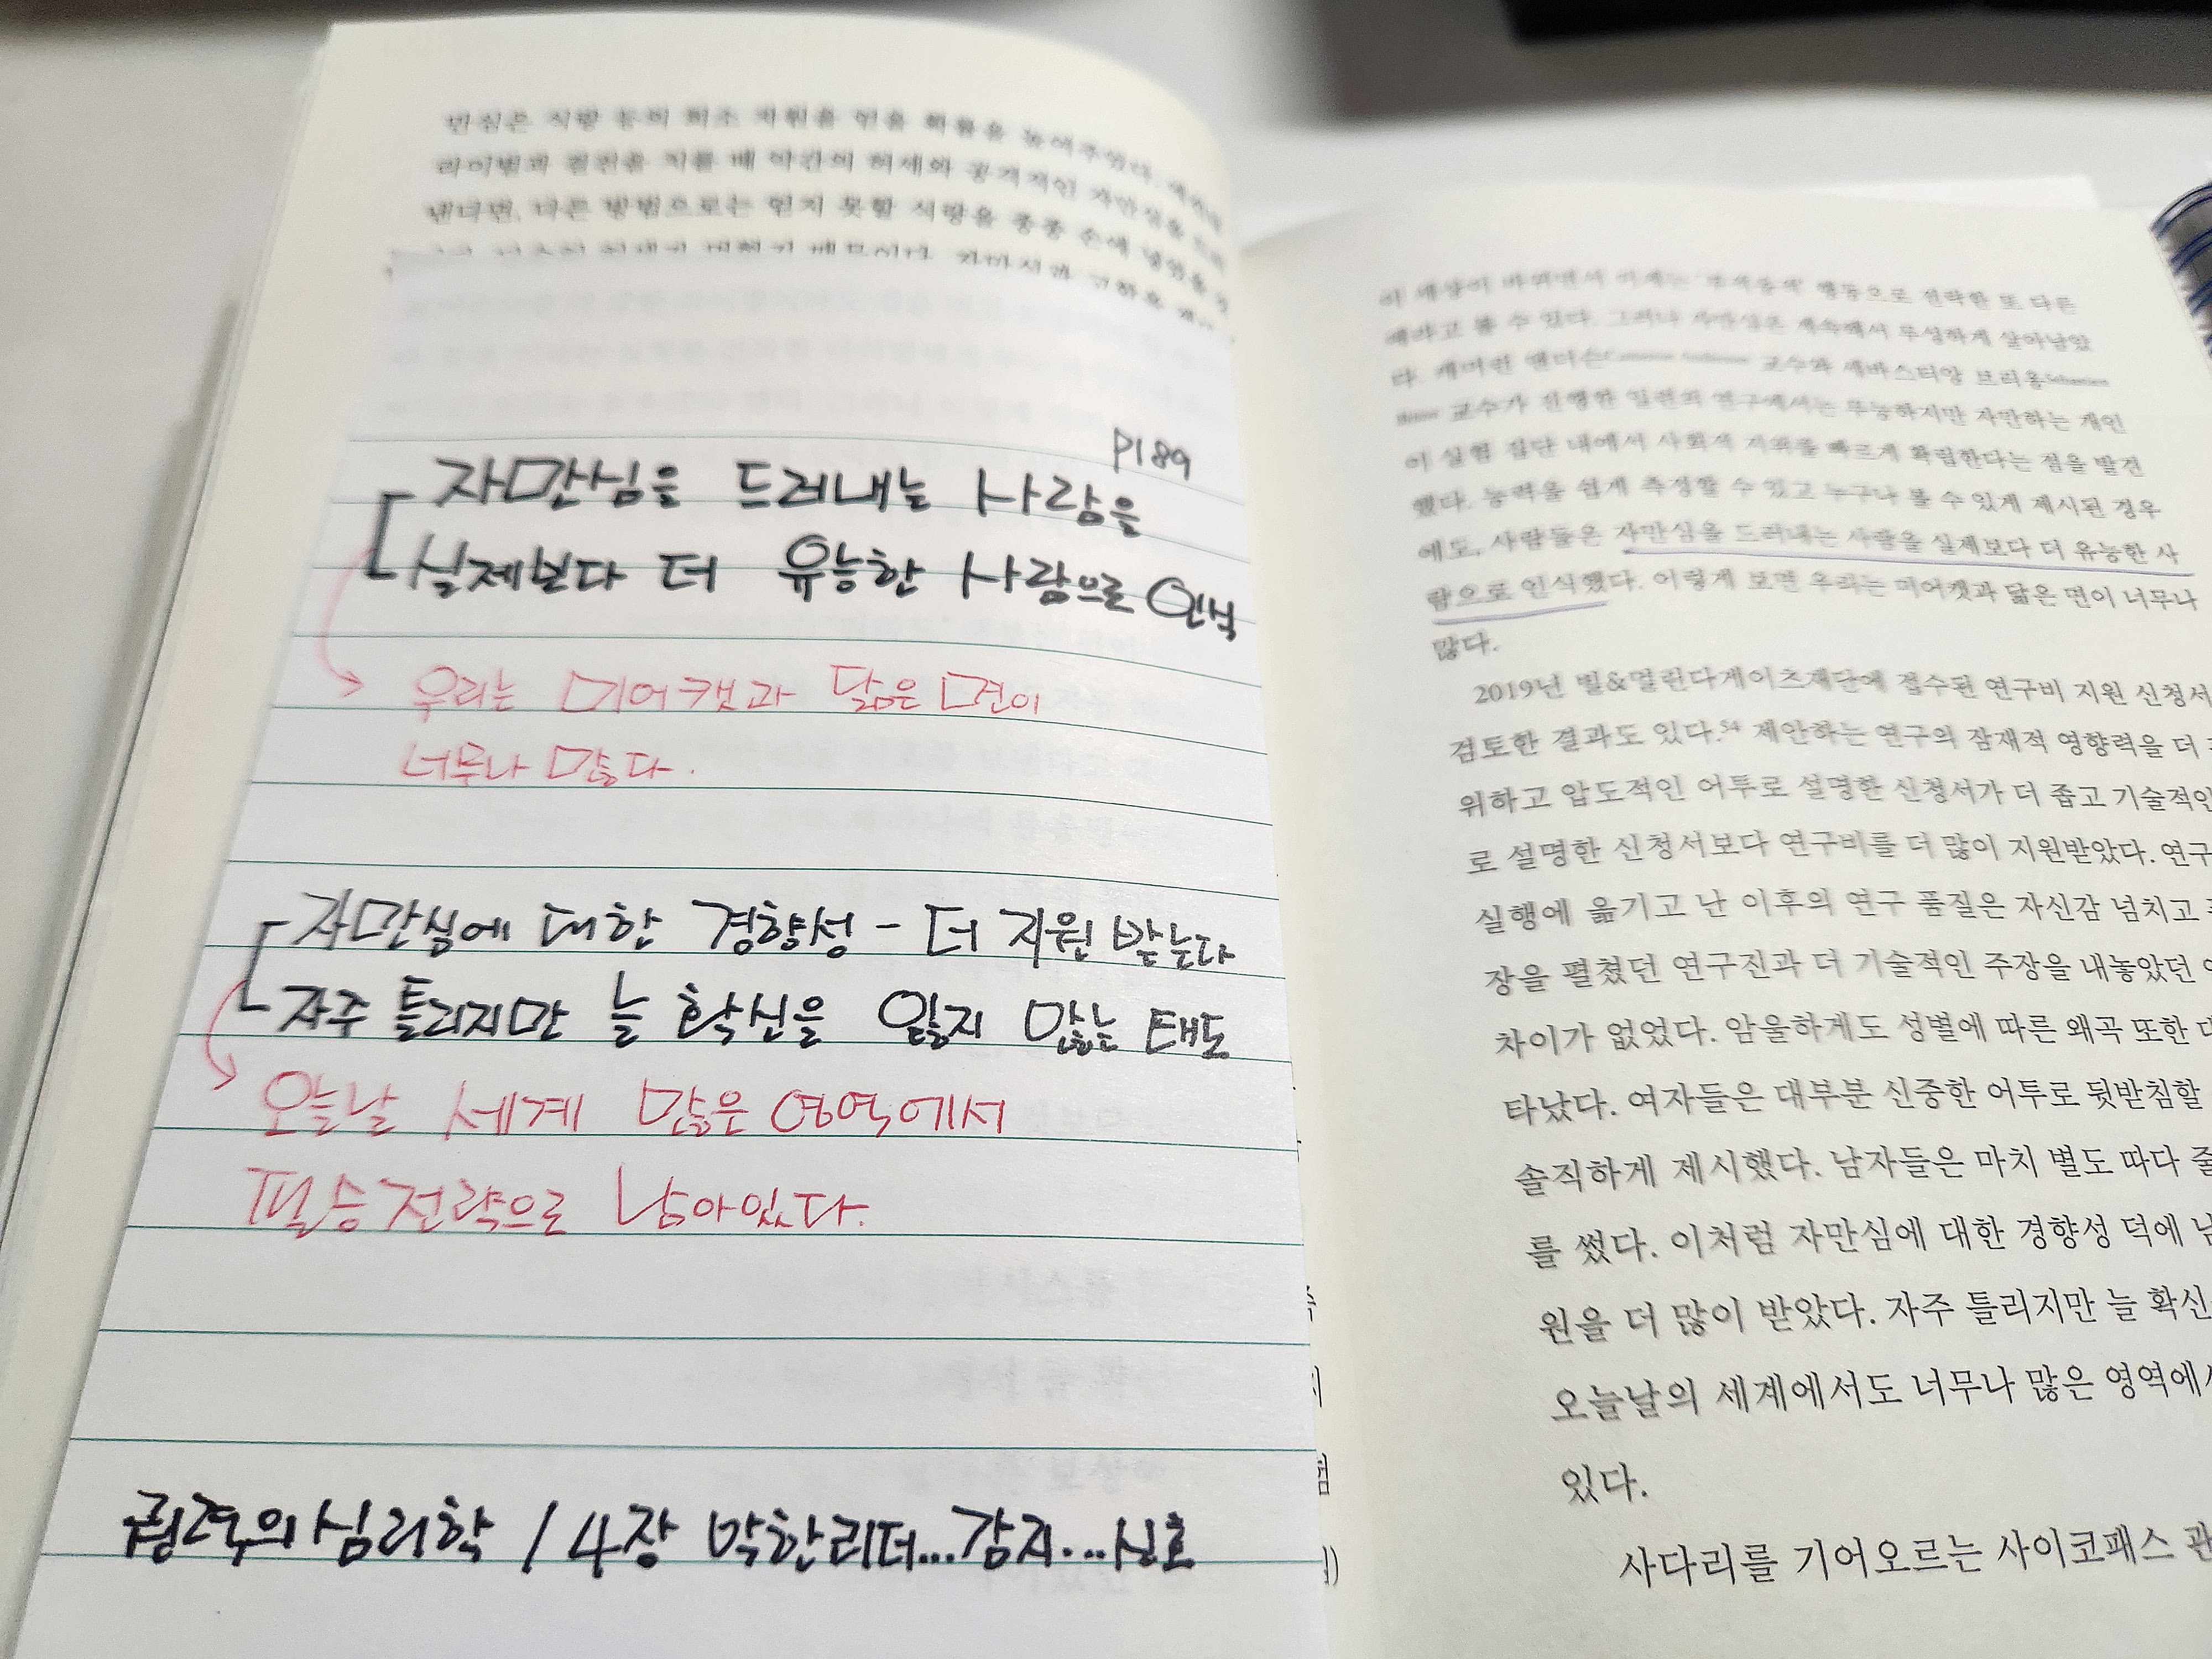 번식은 식량 등의 희소 자원을 얻을 확률을 높여주었다.
라이벌과 결전을 치를 때 약간의 허세와 공격적인 자만심을
낸다면, 다른 방법으로는 얻지 못할 식량을 종종 손에 넣었을
P189
자만심을 드러내는 사람을
실제보다 더 유능한 사람으로 인식
우리는 미어캣과 닮은 면이
너무나 많다.
자만심에 대한 경향성 - 더 지원 받는다
자주 틀리지만 늘 확신을 잃지 않는 태도
오늘날 세계 많은 영역에서
필승전략으로 남아있다.
권력의 심리학 / 4장 막한리더...감지...신호
이 세상이 바뀌면서 이제는 '부적응적' 행동으로 전락한 또 다른
예라고 볼 수 있다. 그러나 자만심은 계속해서 무성하게 살아남았
다. 캐머런 앤더슨Cameron Anderson 교수와 세바스티앙 브리옹Sebastien
Brion 교수가 진행한 일련의 연구에서는 무능하지만 자만하는 개인
이 실험 집단 내에서 사회적 지위를 빠르게 확립한다는 점을 발견
했다. 능력을 쉽게 측정할 수 있고 누구나 볼 수 있게 제시된 경우
에도, 사람들은 자만심을 드러내는 사람을 실제보다 더 유능한 사
람으로 인식했다. 이렇게 보면 우리는 미어캣과 닮은 면이 너무나
많다.
2019년 빌&멀린다게이츠재단에 접수된 연구비 지원 신청서
검토한 결과도 있다.54 제안하는 연구의 잠재적 영향력을 더
위하고 압도적인 어투로 설명한 신청서가 더 좁고 기술적인
로 설명한 신청서보다 연구비를 더 많이 지원받았다. 연구
실행에 옮기고 난 이후의 연구 품질은 자신감 넘치고
장을 펼쳤던 연구진과 더 기술적인 주장을 내놓았던
차이가 없었다. 암울하게도 성별에 따른 왜곡 또한
타났다. 여자들은 대부분 신중한 어투로 뒷받침할
솔직하게 제시했다. 남자들은 마치 별도 따다 줄
를 썼다. 이처럼 자만심에 대한 경향성 덕에
원을 더 많이 받았다. 자주 틀리지만 늘 확신
오늘날의 세계에서도 너무나 많은 영역에서
있다.
사다리를 기어오르는 사이코패스